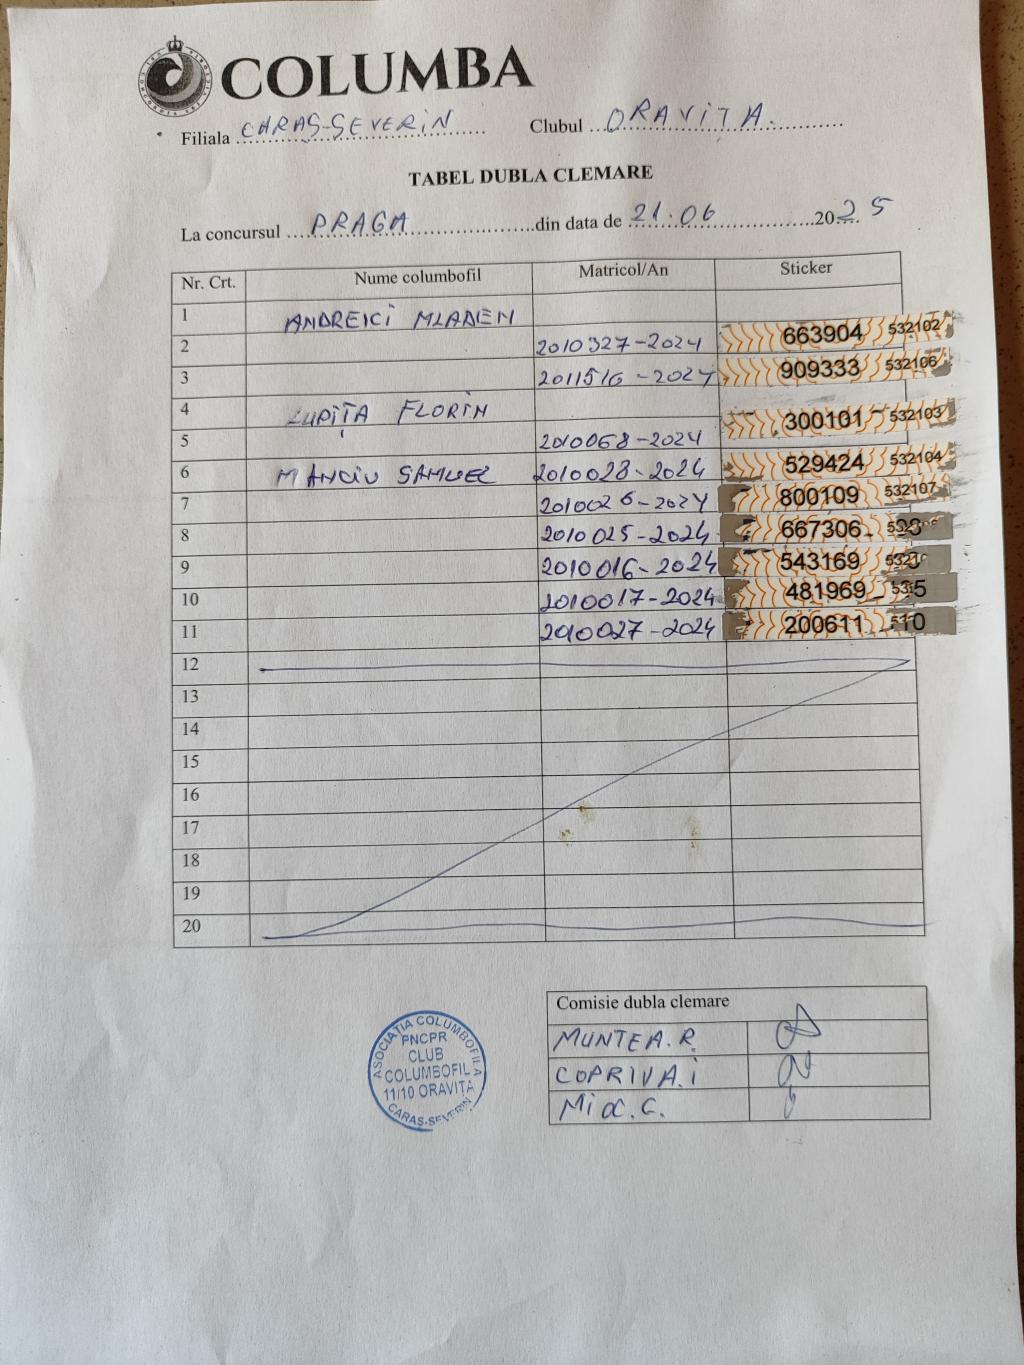 COLUMBA
Filiala CARAȘ-SEVERIN Clubul ORAVIȚA.
TABEL DUBLA CLEMARE
La concursul PRAGA din data de 21.06 2025
Nr. Crt. Nume columbofil Matricol/An Sticker
1 ANDREICI MLADEN
2 2010327-2024 663904 532102
3 2011516-2024 909333 532106
4 LUPIȚA FLORIN
5 2010068-2024 300101 532103
6 MANCIU SAMUEL 2010028-2024 529424 532104
7 2010026-2024 800109 532107
8 2010025-2024 667306
9 2010016-2024 543169
10 2010017-2024 481969
11 2010027-2024 200611
12
13
14
15
16
17
18
19
20
Comisie dubla clemare
MUNTEA.R.
COPRIVA.I
ASOCIATIA COLUMBOFILA
PNCPR
CLUB
COLUMBOFIL
11/10 ORAVIȚA
CARAS-SEVERIN